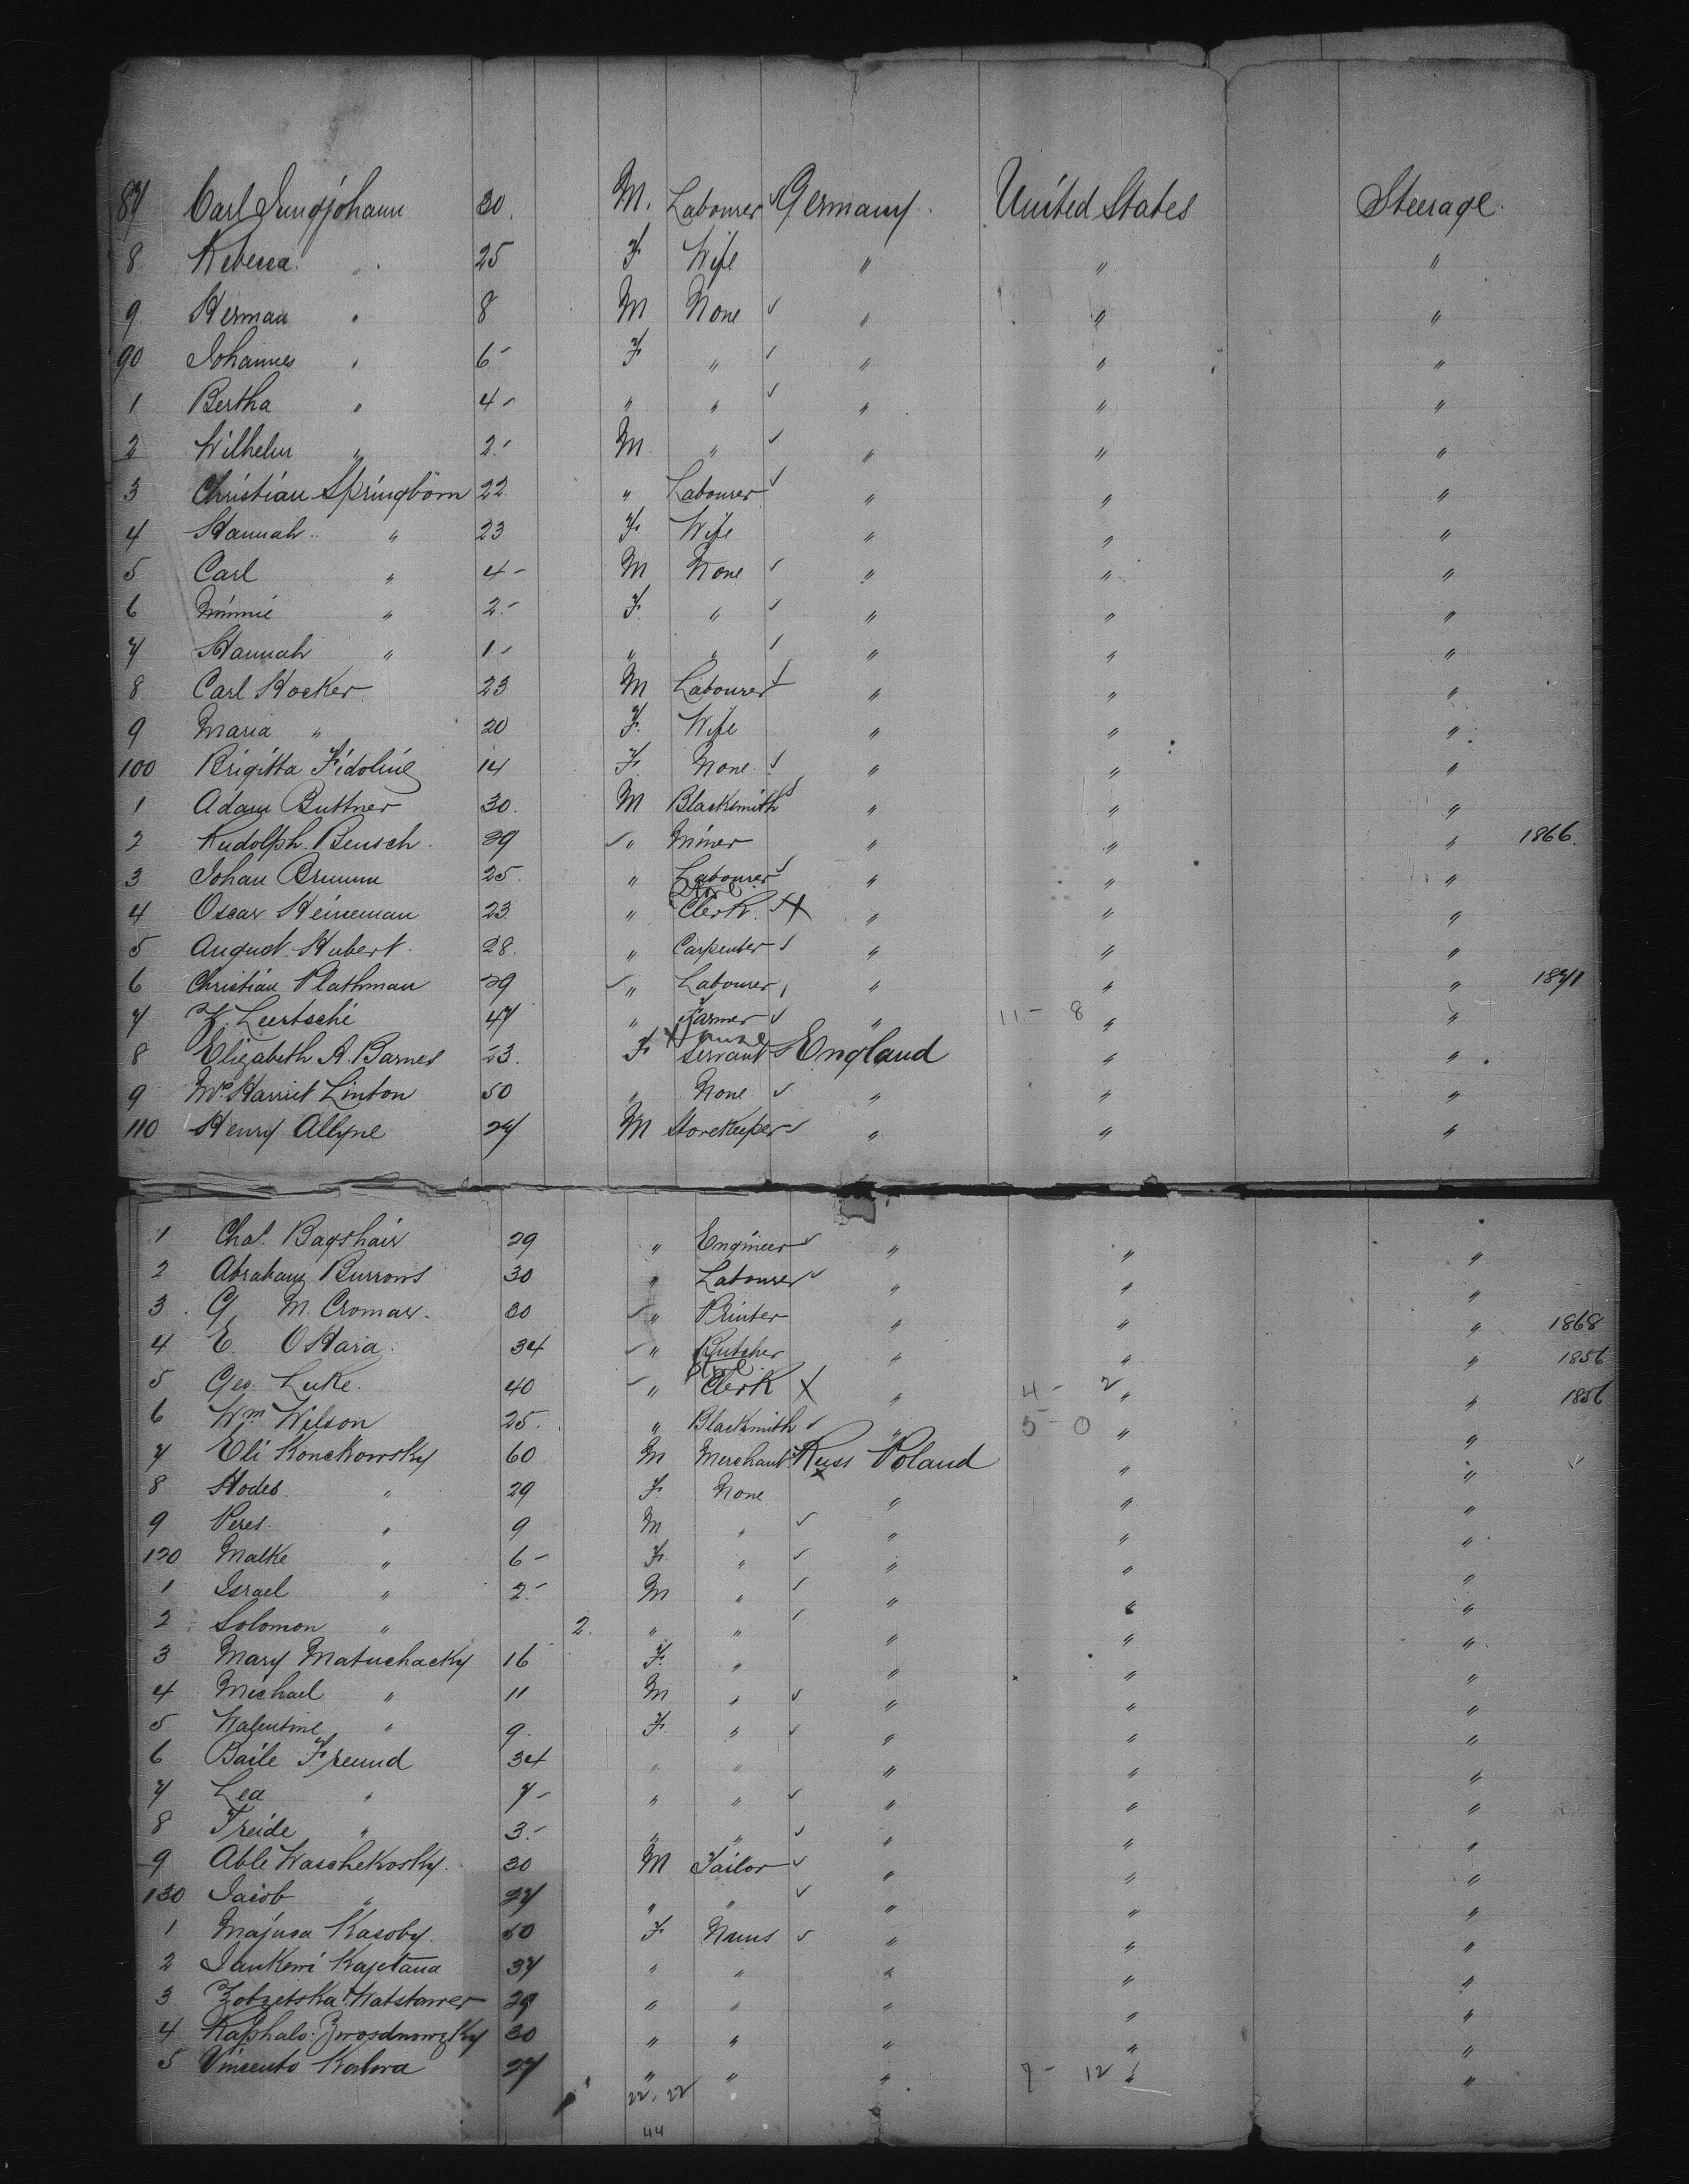 87 Carl Jungjohann 30. M. Labourer ✓ Germany. United States Steerage.
8 Rebecca. " 25 F Wife " " "
9 Herman " 8 M None ✓ " " "
90 Johannes " 6 - F " ✓ " " "
1 Bertha " 4 - " " ✓ " " "
2 Wilhelm " 2. - M " ✓ " " "
3 Christian Springborn 22 " Labourer ✓ " " "
4 Hannah " 23 F. Wife " " "
5 Carl " 4 - M None ✓ " " "
6 Minnie " 2. - F. " ✓ " " "
7 Hannah " 1 - " " ✓ " " "
8 Carl Hocker 23 M Labourer ✓ " " "
9 Maria " 20 F. Wife " " "
100 Brigitta Fidoline 14 F. None ✓ " " "
1 Adam Buttner 30. M Blacksmith ✓ " " "
2 Rudolph Bensch. 39 ✓ " Miner " " " 1866.
3 Johan Brumm 25. " Labourer ✓ " " "
4 Oscar Heineman 23. " Store Clerk. ✓ X " " "
5 August Hubert. 28. " Carpenter ✓ " " "
6 Christian Plathman 29 ✓ " Labourer " " " 1871
7 Leertsche 47 " Farmer ✓ " 11 - 8 " "
8 Elizabeth A. Barnes 23. F X Servant ✓ England " "
9 Mrs Harriet Linton 50 " None ✓ " " "
110 Henry Allyne 27 M Storekeeper ✓ " " "
1 Chas. Bagshaw 29 " Engineer ✓ " " "
2 Abraham Burrows 30 " Labourer ✓ " " "
3 G. M. Cromar. 30 ✓ " Printer " " " 1868
4 E. O Hara. 34 ✓ " Butcher " " " 1856
5 Geo. Luke. 40 ✓ " Clerk X " 4 - 2 " " 1856
6 Wm Wilson 25. " Blacksmith ✓ " 5 - 0 " "
7 Eli Konckowsky 60 M Merchant ✓ Russ Poland X " "
8 Hodes. " 29 F. None " " "
9 Peres. " 9 M " ✓ " " "
120 Malke " 6 - F. " ✓ " " "
1 Israel " 2. - M " ✓ " " "
2 Solomon " 2. " " ✓ " " "
3 Mary Matuchacky 16 F. " " " "
4 Michael " 11 M " ✓ " " "
5 Walentine " 9. F. " ✓ " " "
6 Baile Freund 34 " " " " "
7 Lea " 7 - " " ✓ " " "
8 Freide " 3. - " " ✓ " " "
9 Able Waschekosky. 30 M Tailor ✓ " " "
130 Jacob " 27 " " ✓ " " "
1 Majusa Kasoby. 50 F Nuns ✓ " " "
2 Jankewi Kajetana 37 " " " " "
3 Zobzetska Watstawer 29 " " " " "
4 Raphalo: Zwosdnowzky 30 " " " " "
5 Vincento Kalwa 27 " " " 7 - 12 " "
22. 22
44